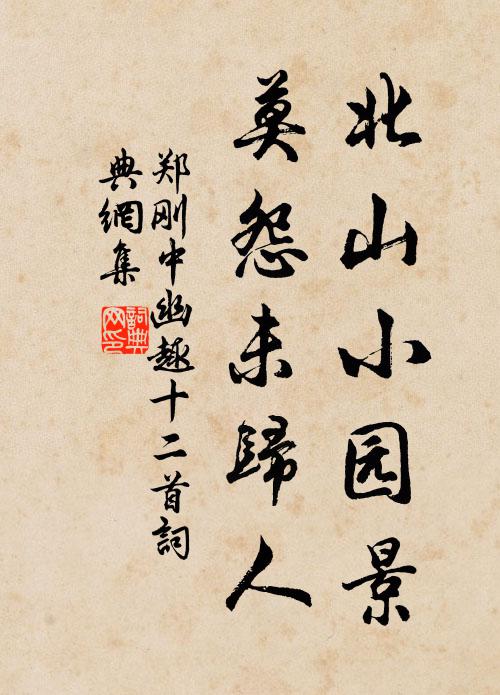 北山小园景
莫怨未歸人
郑刚中幽趣十二首詞
典網集
詞典网印